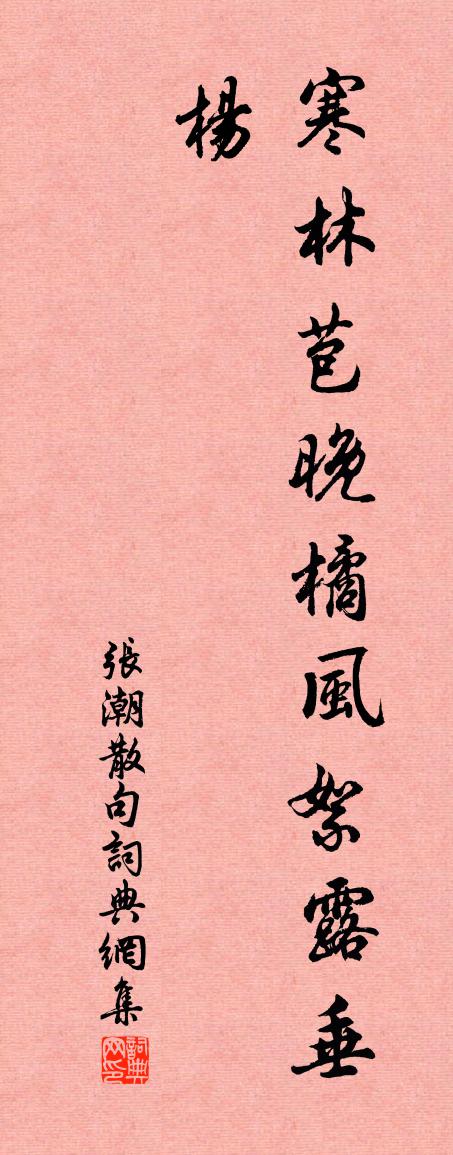 寒林苞晚橘風絮露垂
楊
張潮散句詞典網集
詞典网印